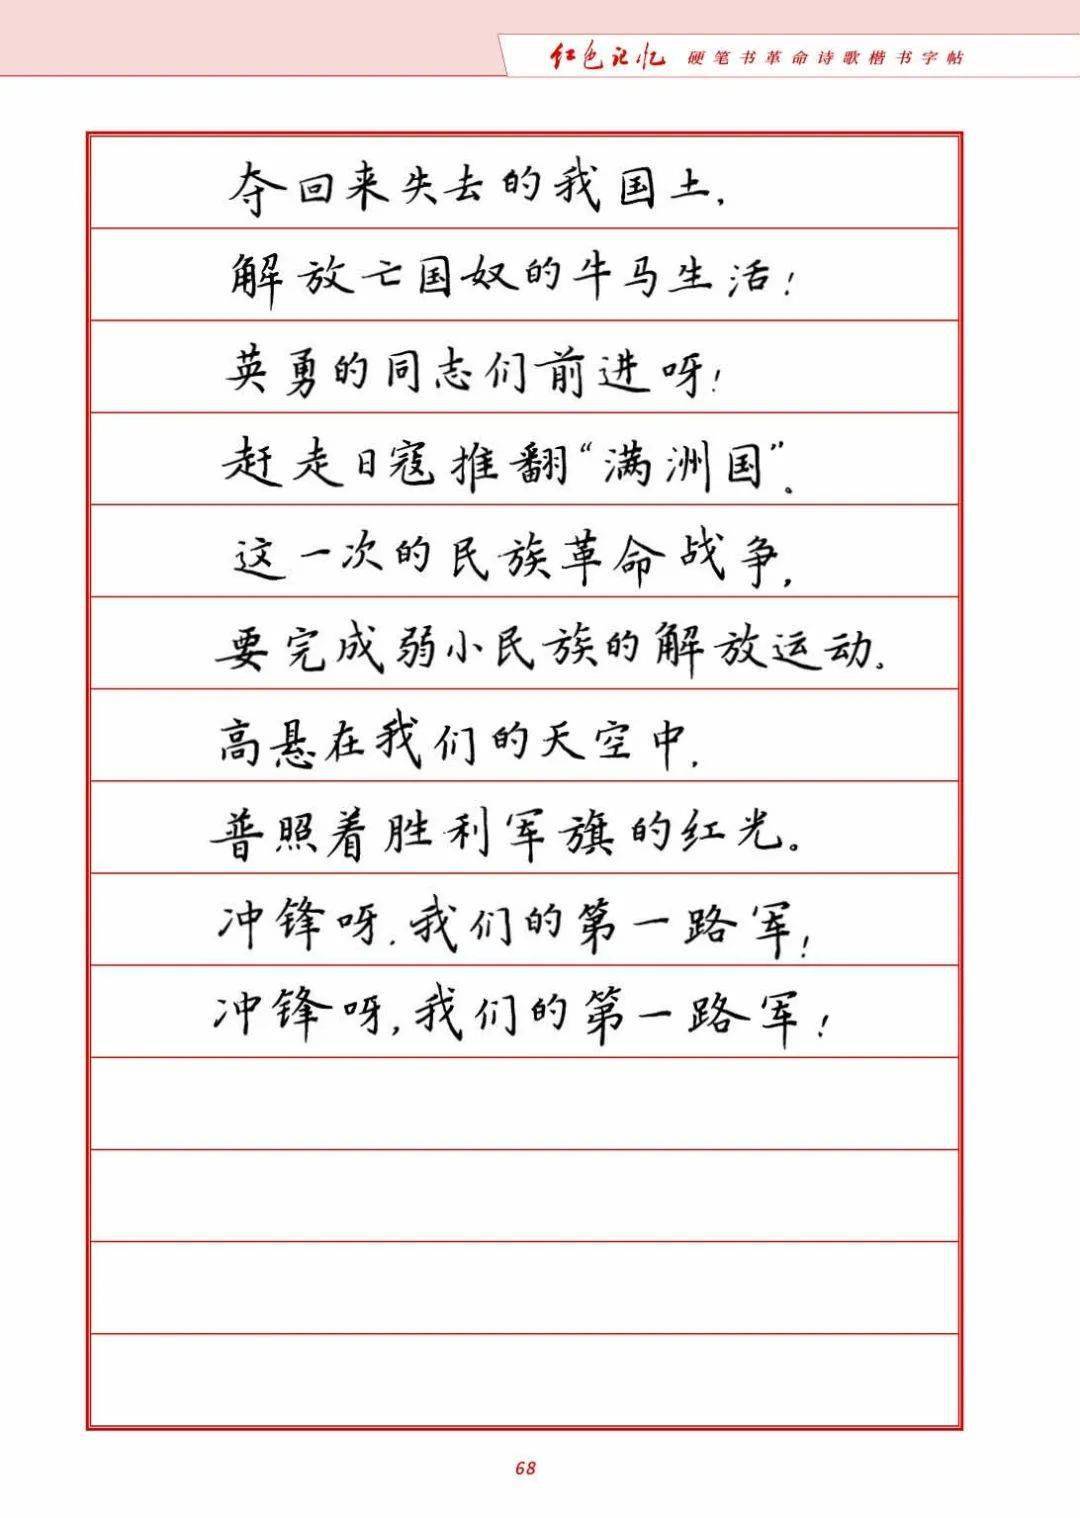 红色记忆 硬笔书革命诗歌楷书字帖
夺回来失去的我国土,
解放亡国奴的牛马生活!
英勇的同志们前进呀!
赶走日寇推翻“满洲国”。
这一次的民族革命战争,
要完成弱小民族的解放运动。
高悬在我们的天空中,
普照着胜利军旗的红光。
冲锋呀,我们的第一路军!
冲锋呀,我们的第一路军!
68